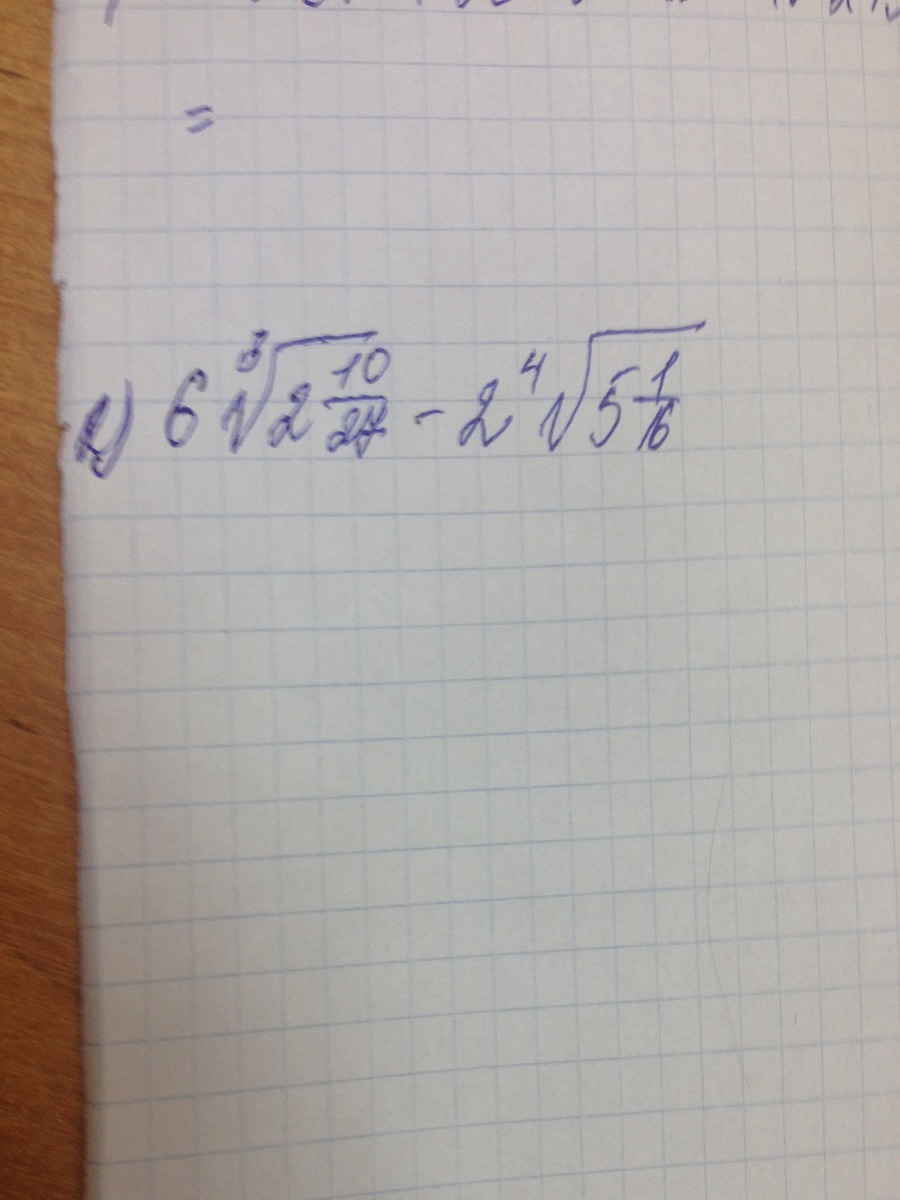 =
2) 6∛(2 10/27) - 2∜(5 1/16)